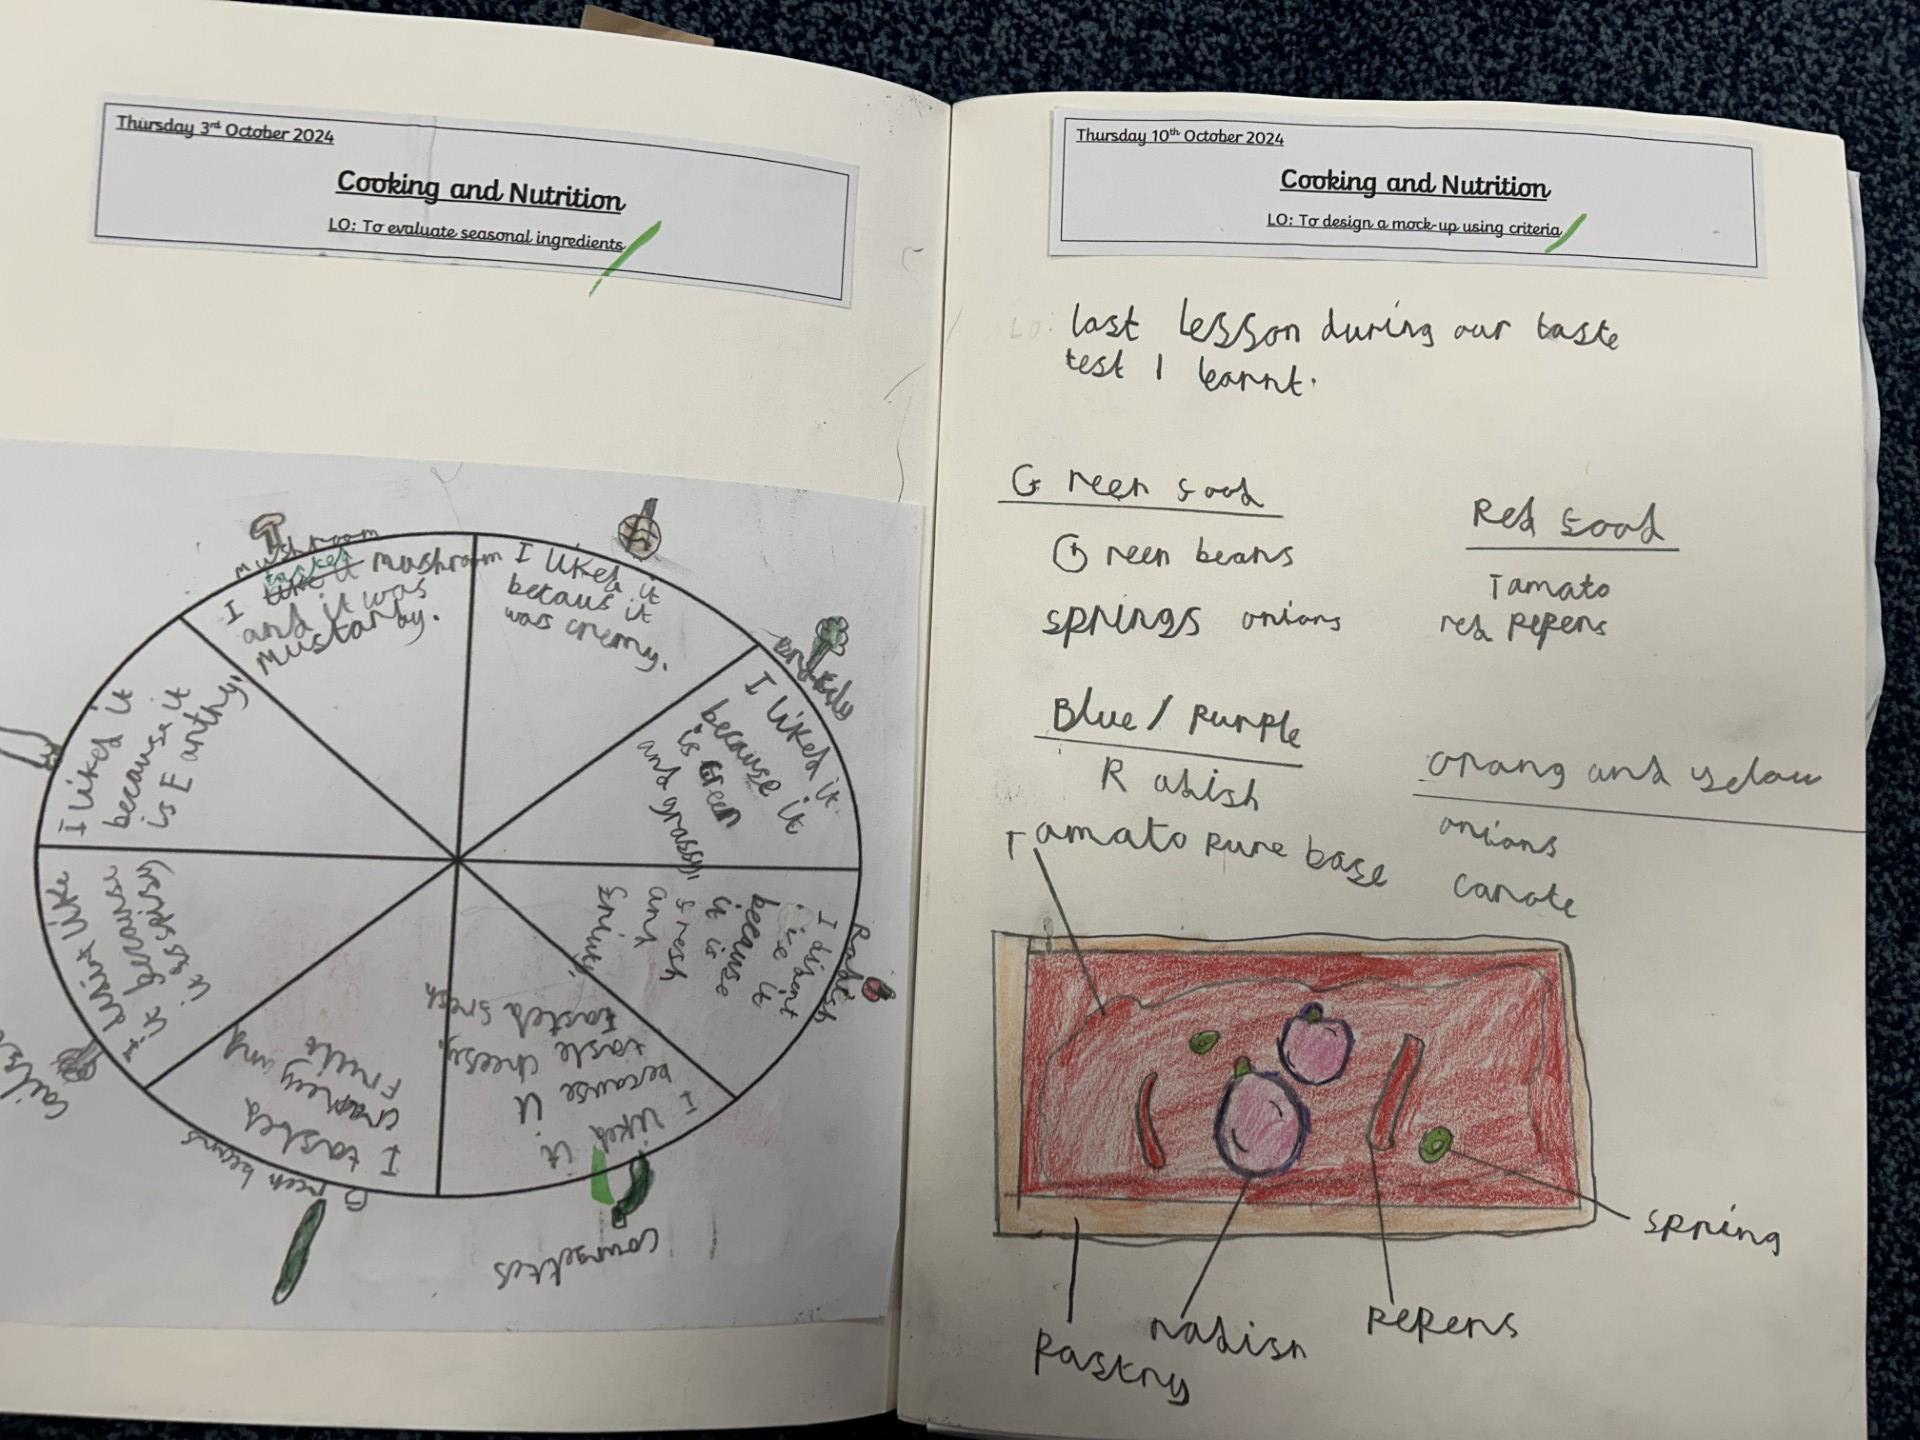 Thursday 3rd October 2024
Cooking and Nutrition
LO: To evaluate seasonal ingredients
mushroom
tasted
I like it mushroom
and it was
mustardy.
I liked it
becaus it
was cremy.
I liked it
because it
is Green
and grassy.
Radish
I dis
it
because
it is
fresh
and
fruity
coursettes
I liked it
because it
taste cheesy.
tasted fresh
Green beans
I tasted
crunchy and
Fruits
it because
it is crispy
I liked it
because it
is Earthy.
Thursday 10th October 2024
Cooking and Nutrition
LO: To design a mock-up using criteria
LO:
last lesson during our taste
test I learnt.
Green food
Green beans
springs onions
Red food
Tamato
red pepers
Blue / purple
Radish
orang and yelow
onions
carote
Tamato pure base
spring
pepers
radish
pastry